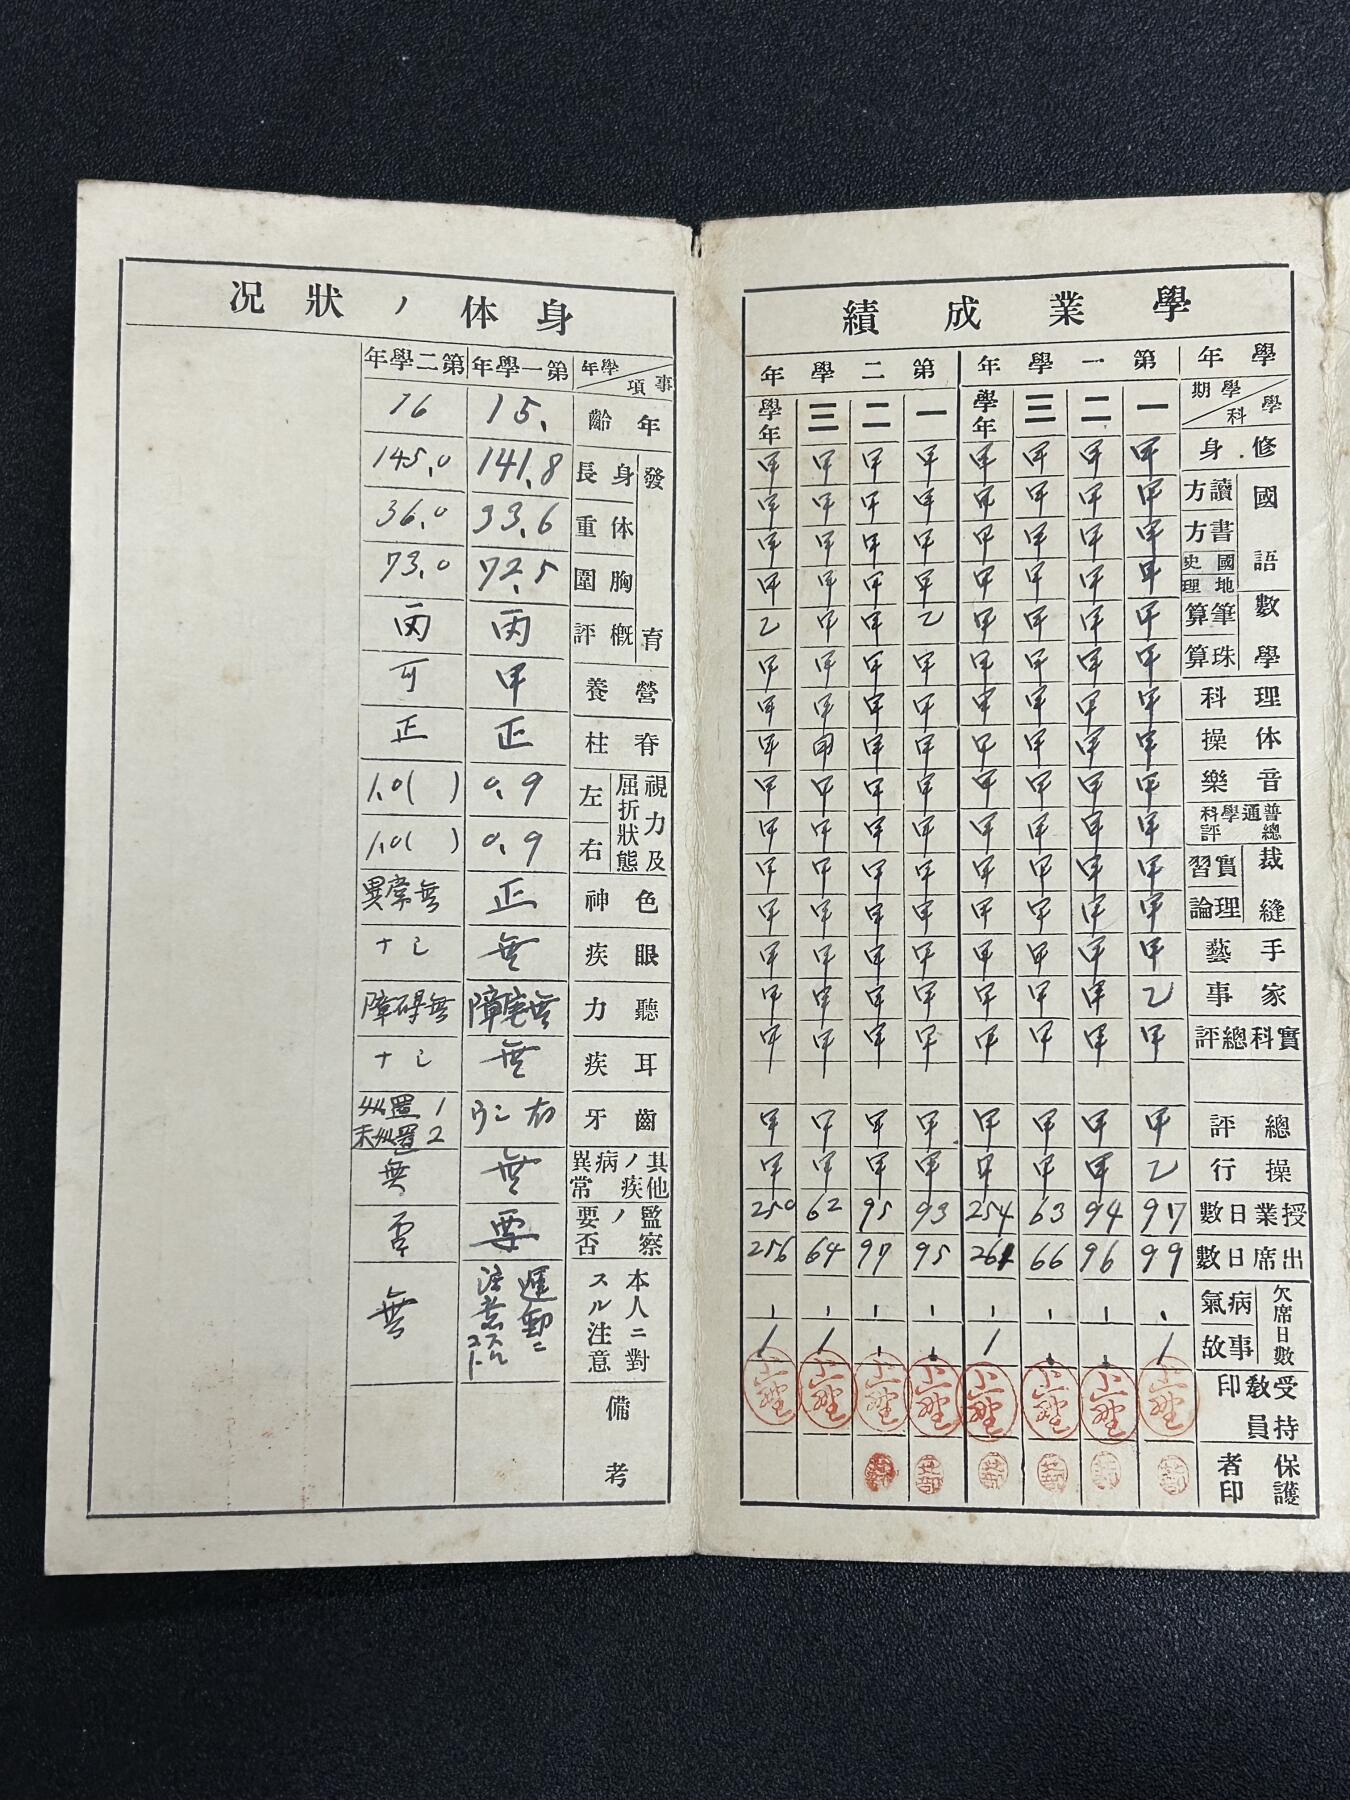 學業成績
學年 第一學年 第二學年
學期 學科 一 二 三 學年 一 二 三 學年
修身 甲 甲 甲 甲 甲 甲 甲 甲
國語 讀方 甲 甲 甲 甲 甲 甲 甲 甲
書方 甲 甲 甲 甲 甲 甲 甲 甲
國史 地理 甲 甲 甲 甲 甲 甲 甲 甲
數學 筆算 甲 甲 甲 甲 乙 甲 甲 乙
珠算 甲 甲 甲 甲 甲 甲 甲 甲
理科 甲 甲 甲 甲 甲 甲 甲 甲
体操 甲 甲 甲 甲 甲 甲 甲 甲
音樂 甲 甲 甲 甲 甲 甲 甲 甲
普通學科總評 甲 甲 甲 甲 甲 甲 甲 甲
裁縫 實習 甲 甲 甲 甲 甲 甲 甲 甲
理論 甲 甲 甲 甲 甲 甲 甲 甲
手藝 甲 甲 甲 甲 甲 甲 甲 甲
家事 乙 甲 甲 甲 甲 甲 甲 甲
實科總評 甲 甲 甲 甲 甲 甲 甲 甲
總評 甲 甲 甲 甲 甲 甲 甲 甲
操行 乙 甲 甲 甲 甲 甲 甲 甲
授業日數 97 94 63 254 93 95 62 250
出席日數 99 96 66 261 95 97 64 256
欠席日數 病氣
事故 1 1 1 1
受持教員印 小野 小野 小野 小野 小野 小野 小野 小野
保護者印
身体ノ狀況
事項 學年 第一學年 第二學年
年齡 15. 16
發育 身長 141.8 145.0
体重 33.6 36.0
胸圍 72.5 73.0
概評 丙 丙
營養 甲 可
脊柱 正 正
視力及屈折狀態 左 0.9 1.0( )
右 0.9 1.0( )
色神 正 異常無
眼疾 無 ナシ
聽力 障害無 障碍無
耳疾 無 ナシ
齒牙 ウシ 有 処置 1
未処置 2
其他ノ疾病異常 無 無
監察ノ要否 要 否
本人ニ對スル注意 運動ニ注意スルコト 無
備考